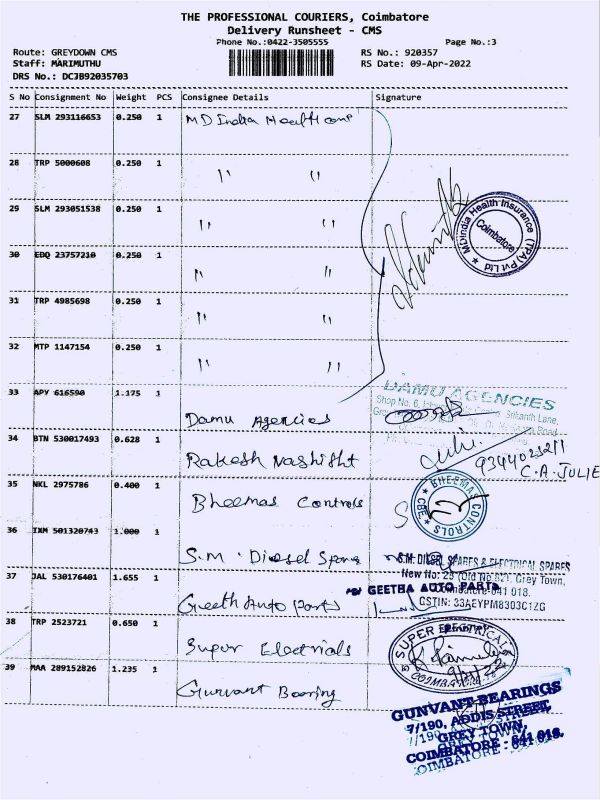 THE PROFESSIONAL COURIERS, Coimbatore
Delivery Runsheet - CMS
Phone No.:0422-3505555 Page No.:3
Route: GREYDOWN CMS RS No.: 920357
Staff: MARIMUTHU RS Date: 09-Apr-2022
DRS No.: DCJB92035703
S No Consignment No Weight PCS Consignee Details Signature
27 SLM 293116653 0.250 1 MD India
28 TRP 5000608 0.250 1 " "
29 SLM 293051538 0.250 1 " "
MDIndia Health Insurance (TPA) Pvt Ltd
Coimbatore
30 EBQ 23757210 0.250 1 " "
31 TRP 4985698 0.250 1 " "
32 MTP 1147154 0.250 1 " "
33 APY 616590 1.175 1 Damu Agencies
DAMU AGENCIES
Shop No. 6, Srikanth Lane,
Road
34 BTN 530017493 0.628 1 Rakesh Nashisht
C.A. JULIE
35 NKL 2975786 0.400 1 Bheemas Controls
BHEEMAS CONTROLS
CBE
36 IXM 501320743 1.000 S.M. Diesel Spares
S.M. DIESEL SPARES & ELECTRICAL SPARES
New No: 29 (Old No 621, Grey Town,
Coimbatore-641 018.
GSTIN: 33AEYPM8303C1ZG
37 JAL 530176401 1.655 1 Geeth Auto Parts
GEETHA AUTO PARTS
38 TRP 2523721 0.650 1 Super Electricals
SUPER ELECTRICALS
COIMBATORE
39 MAA 289152826 1.235 1 Gunvant Bearing
GUNVANT BEARINGS
7/190, ADDIS STREET,
GREY TOWN,
COIMBATORE - 641 018.